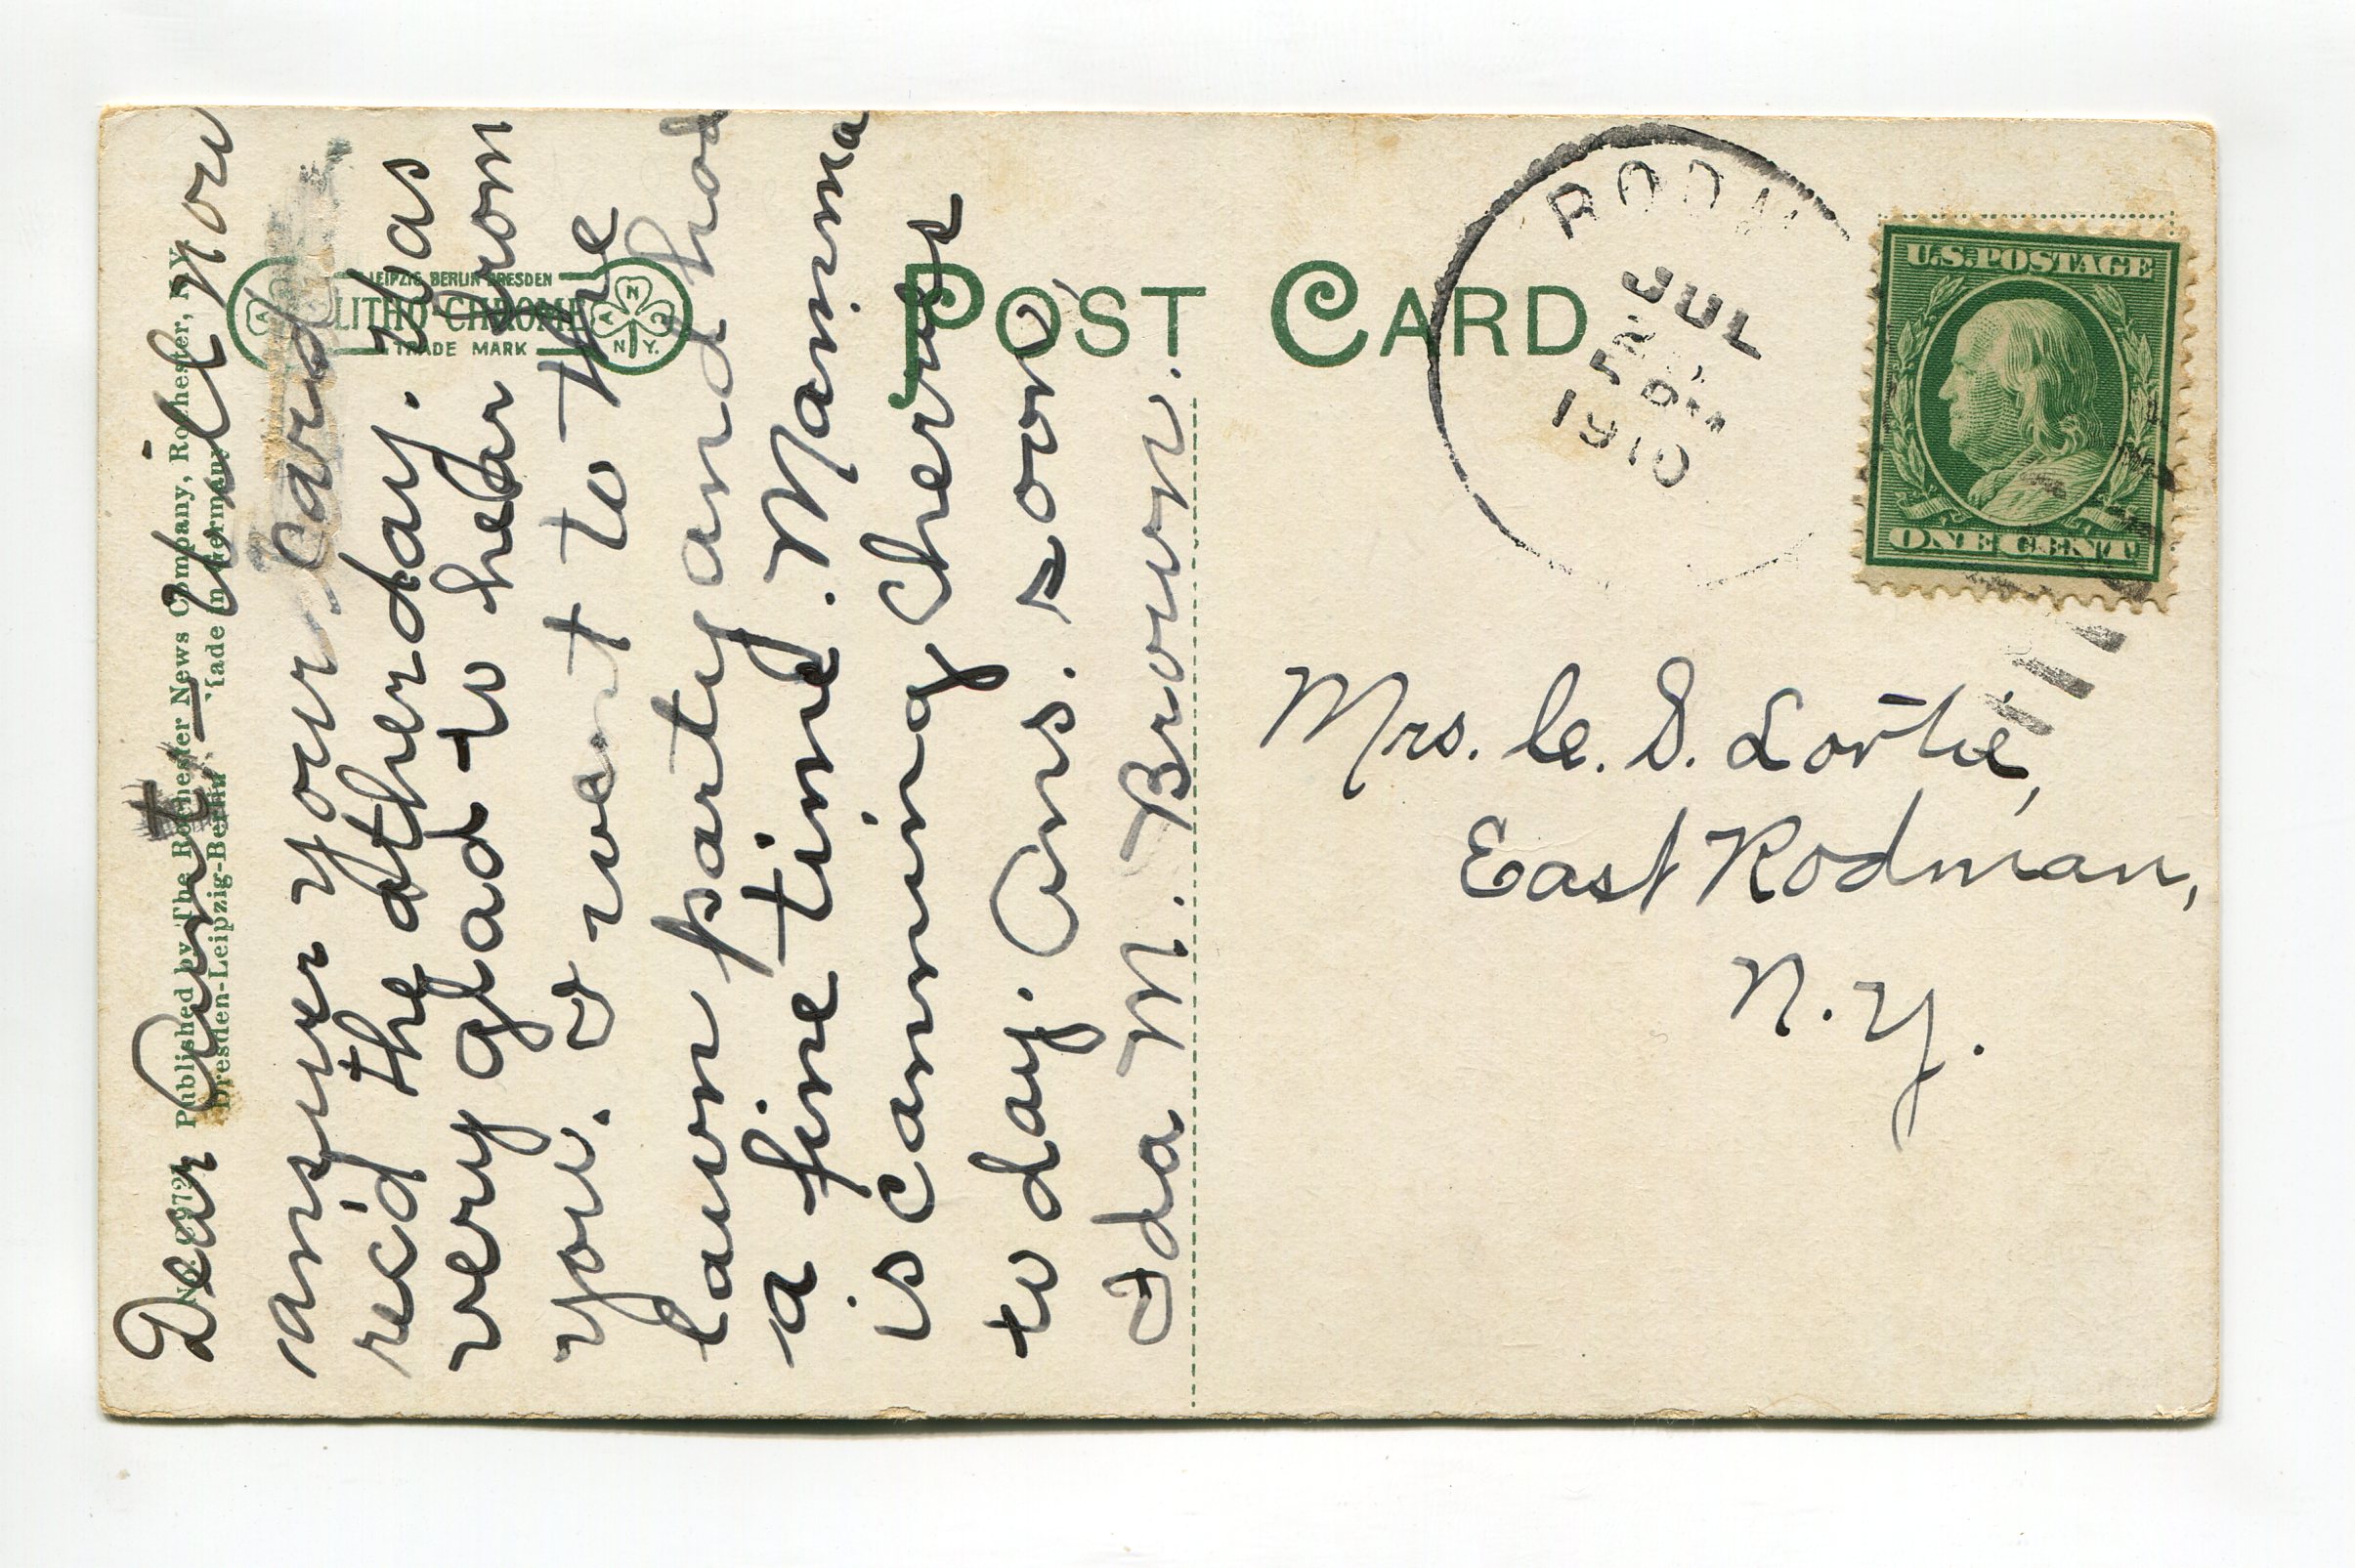 Dear Aunt, — Will now
answer your card
rec'd the other day. Was
very glad to hear from
you. I went to the
lawn party and had
a fine time. Mamma
is canning cherries
to day. Ans. soon,
Ida M. Brown.
Published by The Rochester News Company, Rochester, N.Y.
Dresden-Leipzig-Berlin Made in Germany
LEIPZIG BERLIN DRESDEN
LITHO-CHROME
TRADE MARK
A N C N. Y.
POST CARD
JUL
1910
U.S. POSTAGE
ONE CENT
Mrs. C. D. Lortie,
East Rodman,
N. Y.